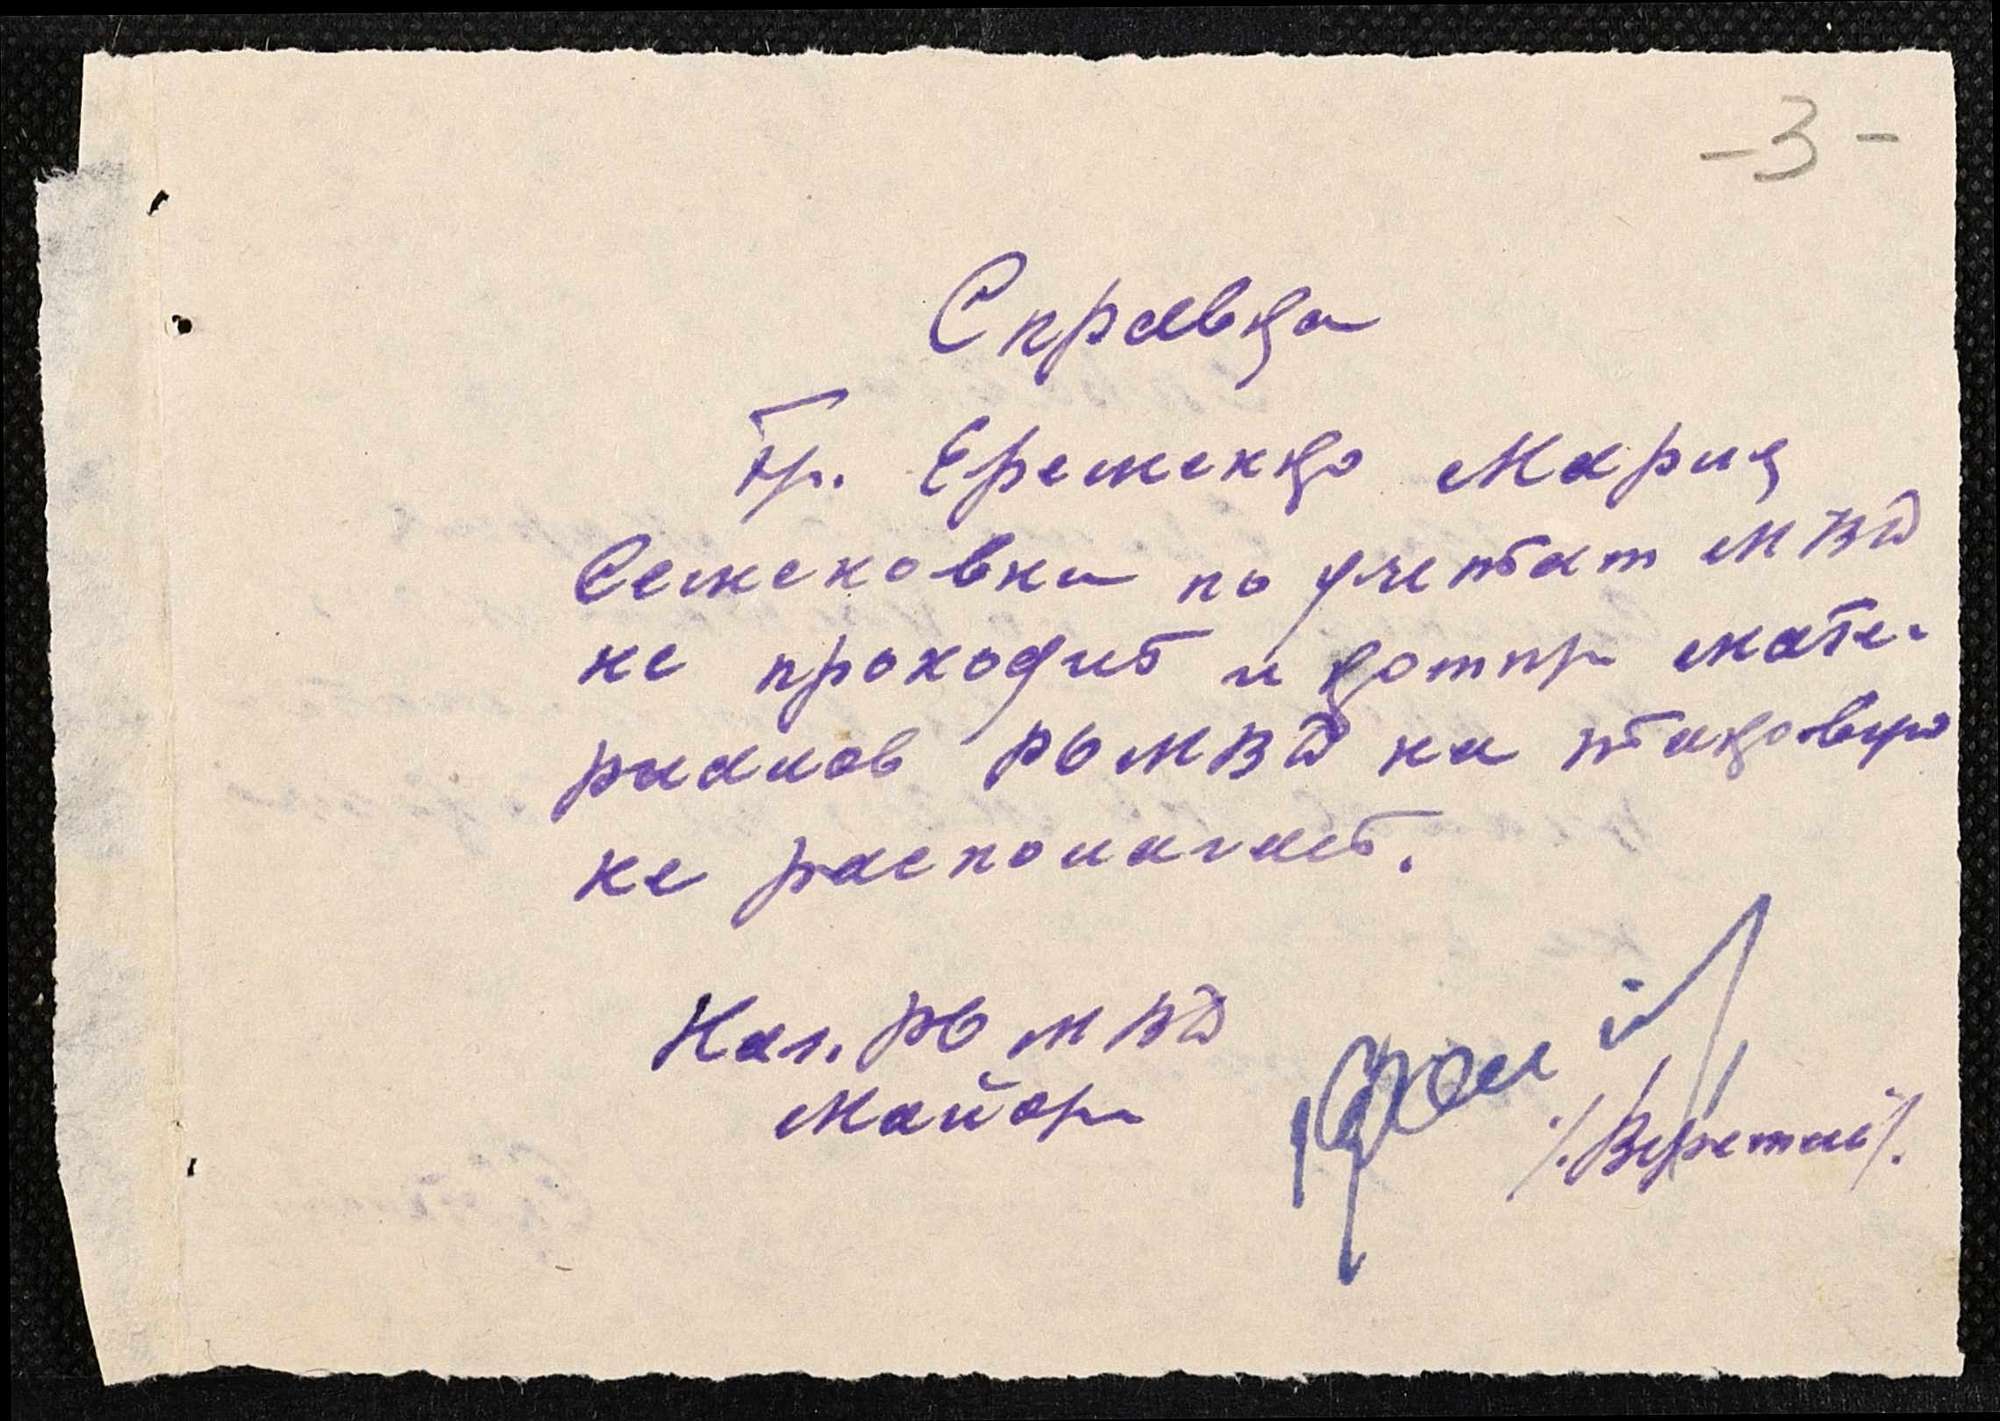 -3-
Справка
Гр. Еременко Мария
Семеновна по учетам МВД
не проходит и компр мате-
риалов РОМВД на таковую
не располагает.
Нач. РО МВД
Майор